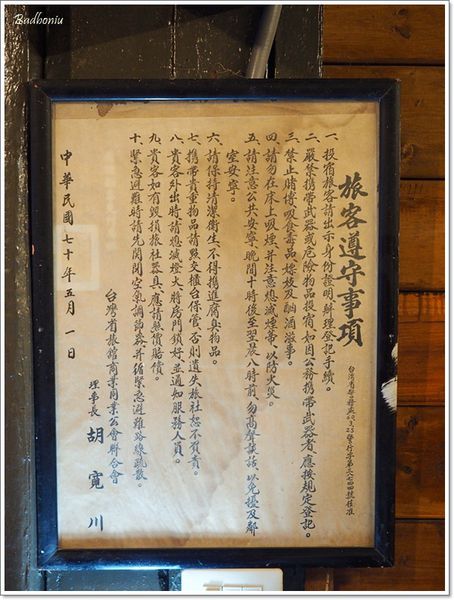 Badboniu
旅客遵守事項
一、投宿旅客請出示身份證明辦理登記手續。
二、嚴禁携帶武器或危險物品投宿，如因公務携帶武器者、應按規定登記。
三、禁止賭博、吸食毒品、嫖妓及酗酒滋事。
四、請勿在床上吸煙，并注意熄滅煙蒂、以防火災。
五、請注意公共安寧、晚間十時後至翌晨八時前、勿高聲談話、以免擾及鄰
室安寧。
六、請保持清潔衛生、不得携進腐臭物品。
七、携帶貴重物品請點交櫃台保管、否則遺失旅社恕不負責。
八、貴客外出時、請熄滅燈火將房門鎖好並通知服務人員。
九、貴客如有毀損旅社器具、應請照價賠償。
十、緊急避難時請先關閉空氣調節器并循緊急避難路線疏散。
台灣省旅館商業同業公會聯合會
理事長 胡寬川
中華民國七十年五月一日